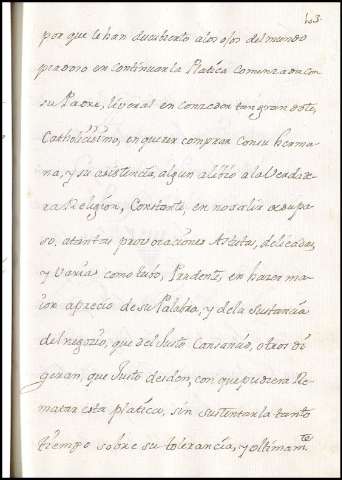 63.
por que le han descubierto a los ojos del mundo
piadoso en continuar la Platica comenzada con
su Padre, liveral en conzeder tan gran dote,
Catholicissimo, en querer comprar con su herma-
na, y su asistencia, algun alivio a la Verdade-
ra Religion, Constante, en no salir de su pa-
so, a tantas provocaciones Astutas, delicadas,
y Varias como tubo, Prudente, en hazer ma-
ior aprecio de su Palabra, y de la sustancia
del negocio, que del Justo Cansancio, otros di-
geran, que Justo desden, con que pudiera Re-
matar esta platica, sin sustentarla tanto
tiempo sobre su tolerancia, y oltimam.te